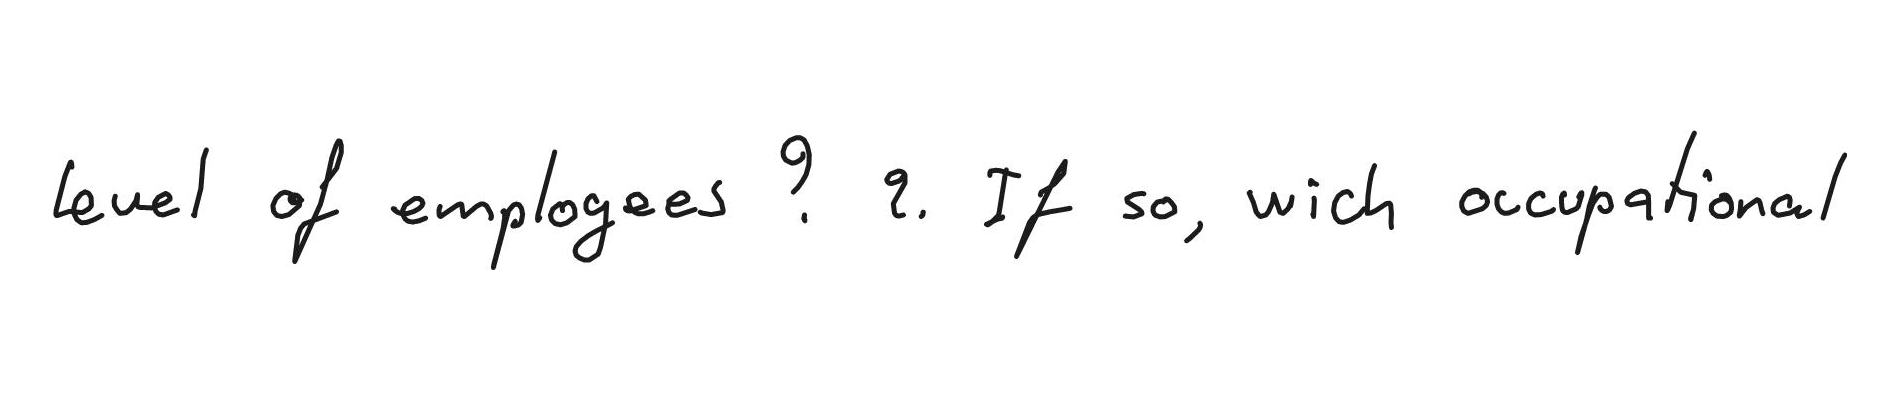 level of employees? 2. If so, wich occupational